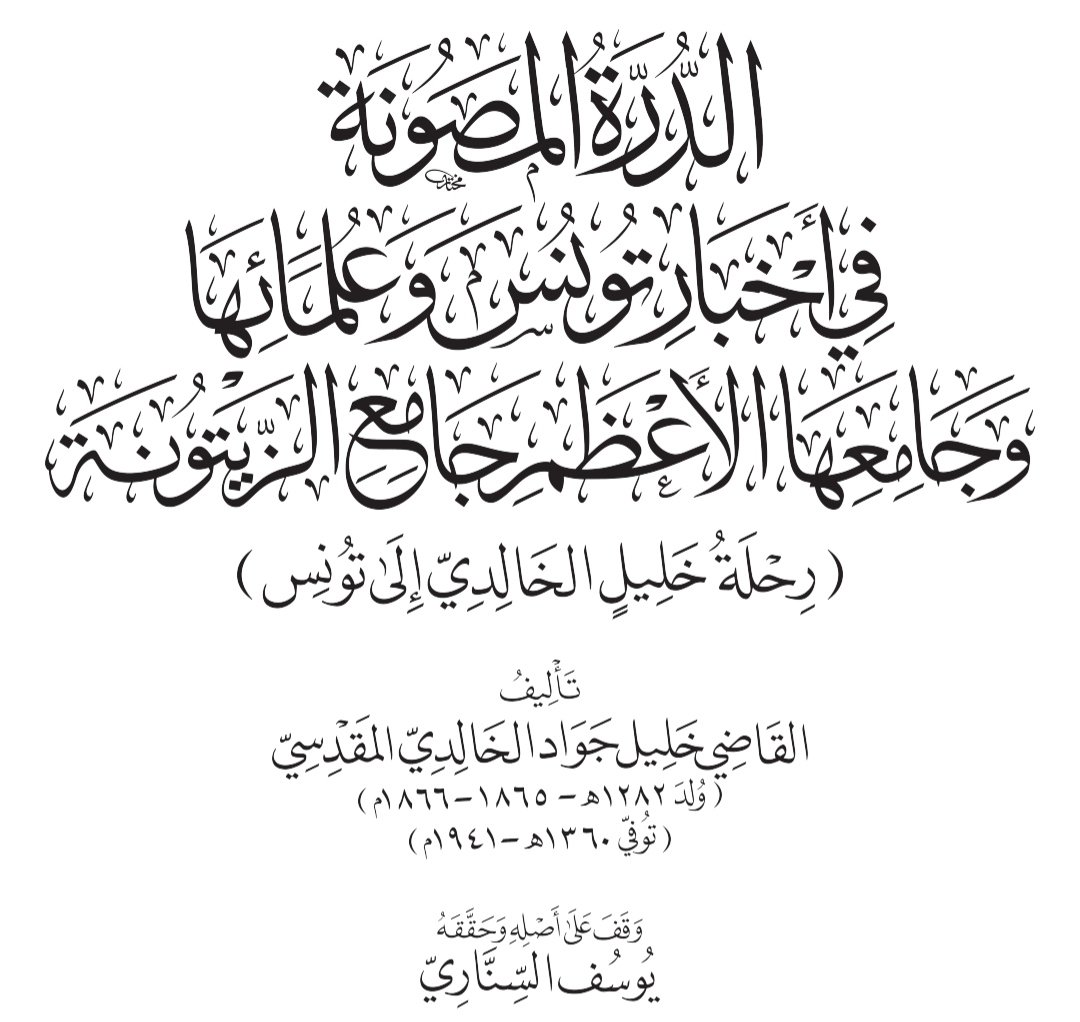 الدُّرَّةُ المَصُونَة
فِي أَخْبَارِ تُونُسَ وَعُلَمَائِهَا
وَجَامِعِهَا الأَعْظَمِ جَامِعِ الزَّيْتُونَة
(رِحْلَةُ خَلِيلٍ الخَالِدِيّ إِلَى تُونِس)
تَأْلِيفُ
القَاضِي خَلِيل جَوَاد الخَالِدِيّ المَقْدِسِيّ
(وُلدَ ١٢٨٢هـ – ١٨٦٥–١٨٦٦م)
(تُوفّي ١٣٦٠هـ – ١٩٤١م)
وَقَفَ عَلَى أَصْلِهِ وَحَقَّقَهُ
يُوسُف السِّنَّارِيّ